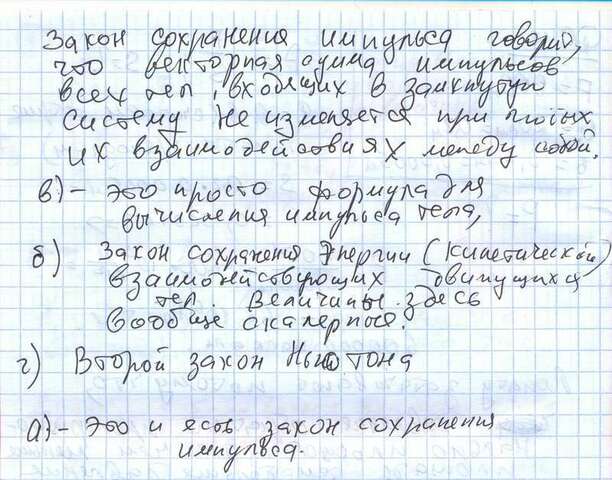 Закон сохранения импульса говорит,
что векторная сумма импульсов
всех тел, входящих в замкнутую
систему не изменяется при любых
их взаимодействиях между собой.
в) - это просто формула для
вычисления импульса тела,
б) Закон сохранения Энергии (кинетической)
взаимодействующих движущихся
тел. Величины здесь
вообще скалярные.
г) Второй закон Ньютона
а) - Это и есть закон сохранения
импульса.